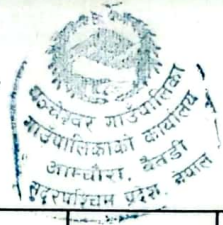 पञ्चेश्वर गाउँपालिका
गाउँपालिकाको कार्यालय
आमचौरा, बैतडी
सुदूरपश्चिम प्रदेश, नेपाल